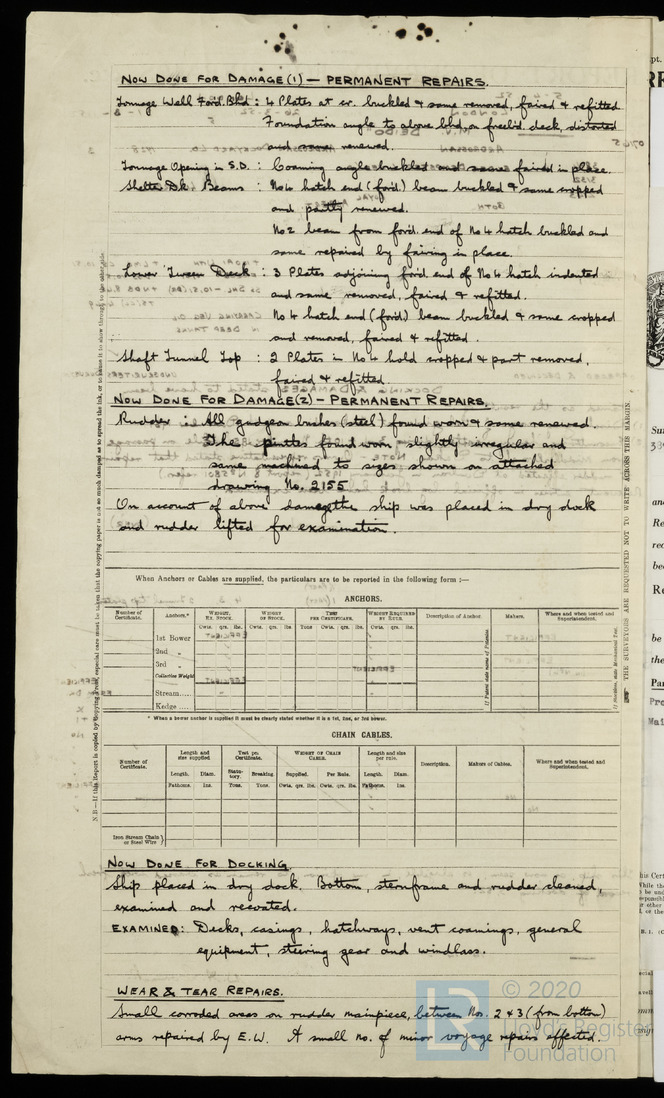 NOW DONE FOR DAMAGE (1) — PERMANENT REPAIRS.
Tonnage Well Ford. Bhd : 4 Plates at cr. buckled & same removed, faired & refitted
Foundation angle to above bhd, on freebd. deck, distorted
and same renewed.
Tonnage Opening in S.D. : Coaming angle buckled and same faired in place.
Shelter Dk Beams : No 4 hatch end (for'd) beam buckled & same cropped
and partly renewed.
No 2 beam from for'd. end of No 4 hatch buckled and
same repaired by fairing in place.
Lower 'Tween Deck : 3 Plates adjoining for'd end of No 4 hatch indented
and same removed, faired & refitted.
No 4 hatch end (for'd) beam buckled & same cropped
and removed, faired & refitted.
Shaft Tunnel Top : 2 Plates in No 4 hold cropped & part removed,
faired & refitted.
NOW DONE FOR DAMAGE (2) — PERMANENT REPAIRS.
Rudder : All gudgeon bushes (steel) found worn & same renewed.
The pintles found worn slightly irregular and
same machined to sizes shown on attached
drawing No. 2155
On account of above damage the ship was placed in dry dock
and rudder lifted for examination.
When Anchors or Cables are supplied, the particulars are to be reported in the following form :—
ANCHORS.
Number of Certificate. Anchors.* WEIGHT, EX. STOCK. WEIGHT OF STOCK. TEST PER CERTIFICATE. WEIGHT REQUIRED BY RULE. Description of Anchor. Makers. Where and when tested and Superintendent.
Cwts. qrs. lbs. Cwts. qrs. lbs. Tons. Cwts. qrs. lbs. Cwts. qrs. lbs.
1st Bower
2nd „
3rd „
Collective Weight
Stream
Kedge
* When a bower anchor is supplied it must be clearly stated whether it is a 1st, 2nd, or 3rd bower.
CHAIN CABLES.
Number of Certificate. Length and size supplied Test per Certificate. WEIGHT OF CHAIN CABLE. Length and size per rule. Description. Makers of Cables. Where and when tested and Superintendent.
Length. Diam. Statutory. Breaking. Supplied. Per Rule. Length. Diam.
Fathoms. Ins. Tons. Tons. Cwts. qrs. lbs. Cwts. qrs. lbs. Fathoms. Ins.
Iron Stream Chain or Steel Wire
NOW DONE FOR DOCKING.
Ship placed in dry dock. Bottom, sternframe and rudder cleaned,
examined and recoated.
EXAMINED: Decks, casings, hatchways, vent coamings, general
equipment, steering gear and windlass.
WEAR & TEAR REPAIRS.
Small corroded areas on rudder mainpiece, between Nos. 2 & 3 (from bottom)
arms repaired by E.W. A small no. of minor voyage repairs effected.
N.B.—If this Report is copied by Copying Press, especial care must be taken that the copying paper is not so much damped as to spread the ink, or to cause it to show through to the other side.
THE SURVEYORS ARE REQUESTED NOT TO WRITE ACROSS THIS MARGIN.
LR
© 2020
Lloyd's Register
Foundation